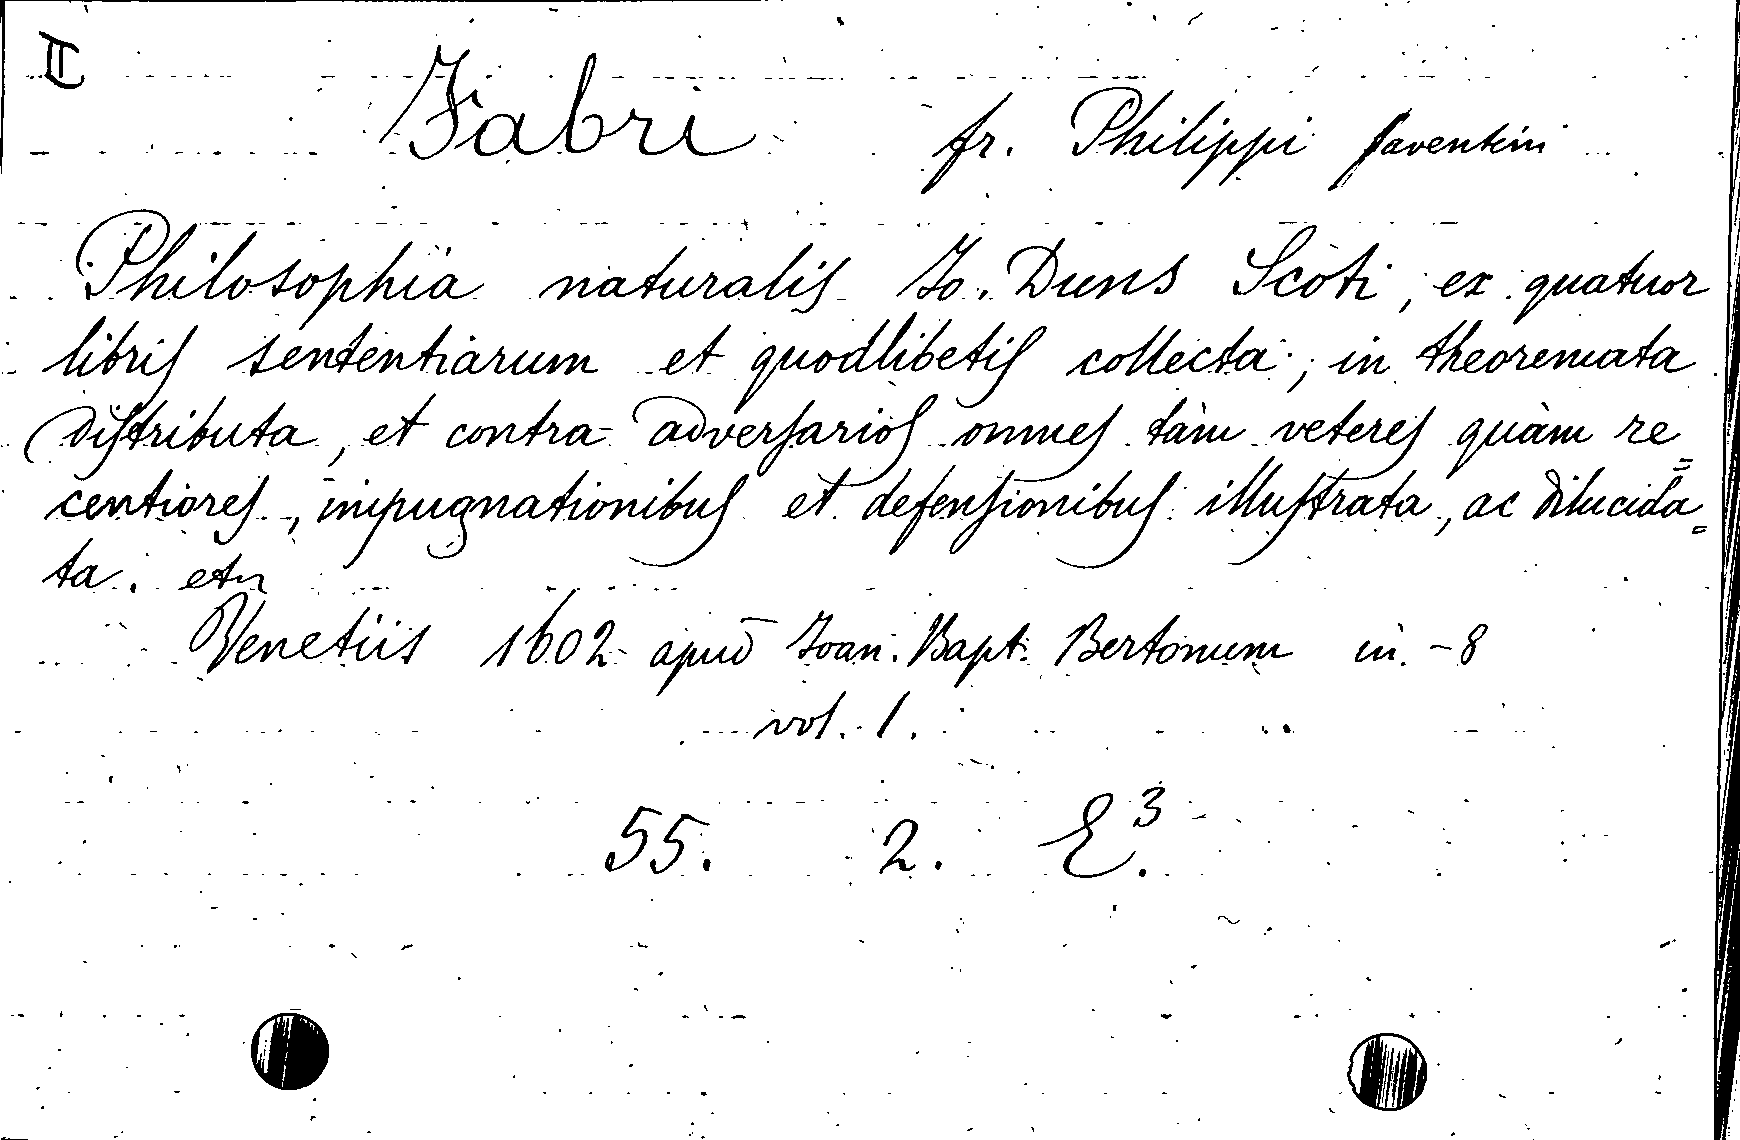 II
Fabri fr. Philippi faventini
Philosophia naturalis Jo. Duns Scoti, ex quatuor
libris sententiarum et quodlibetis collecta; in theoremata
distributa, et contra adversarios omnes tàm veteres quàm re=
centiores, impugnationibus et defensionibus illustrata, ac dilucida=
ta. etc
Venetiis 1602 apud Joan. Bapt. Bertonum in-8
vol. 1.
55. 2. E³.